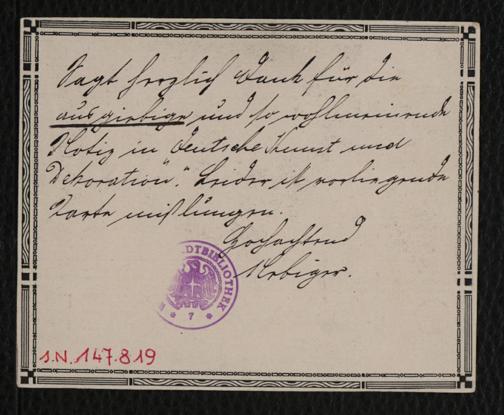 Sagt herzlich Dank für die
ausgiebige und so wohlmeinende
Notiz in „Deutsche Kunst und
Dekoration“. Leider ist vorliegende
Karte mißlungen.
Hochachtend
DTBIBLIOTHEK
7
I.N. 147.819